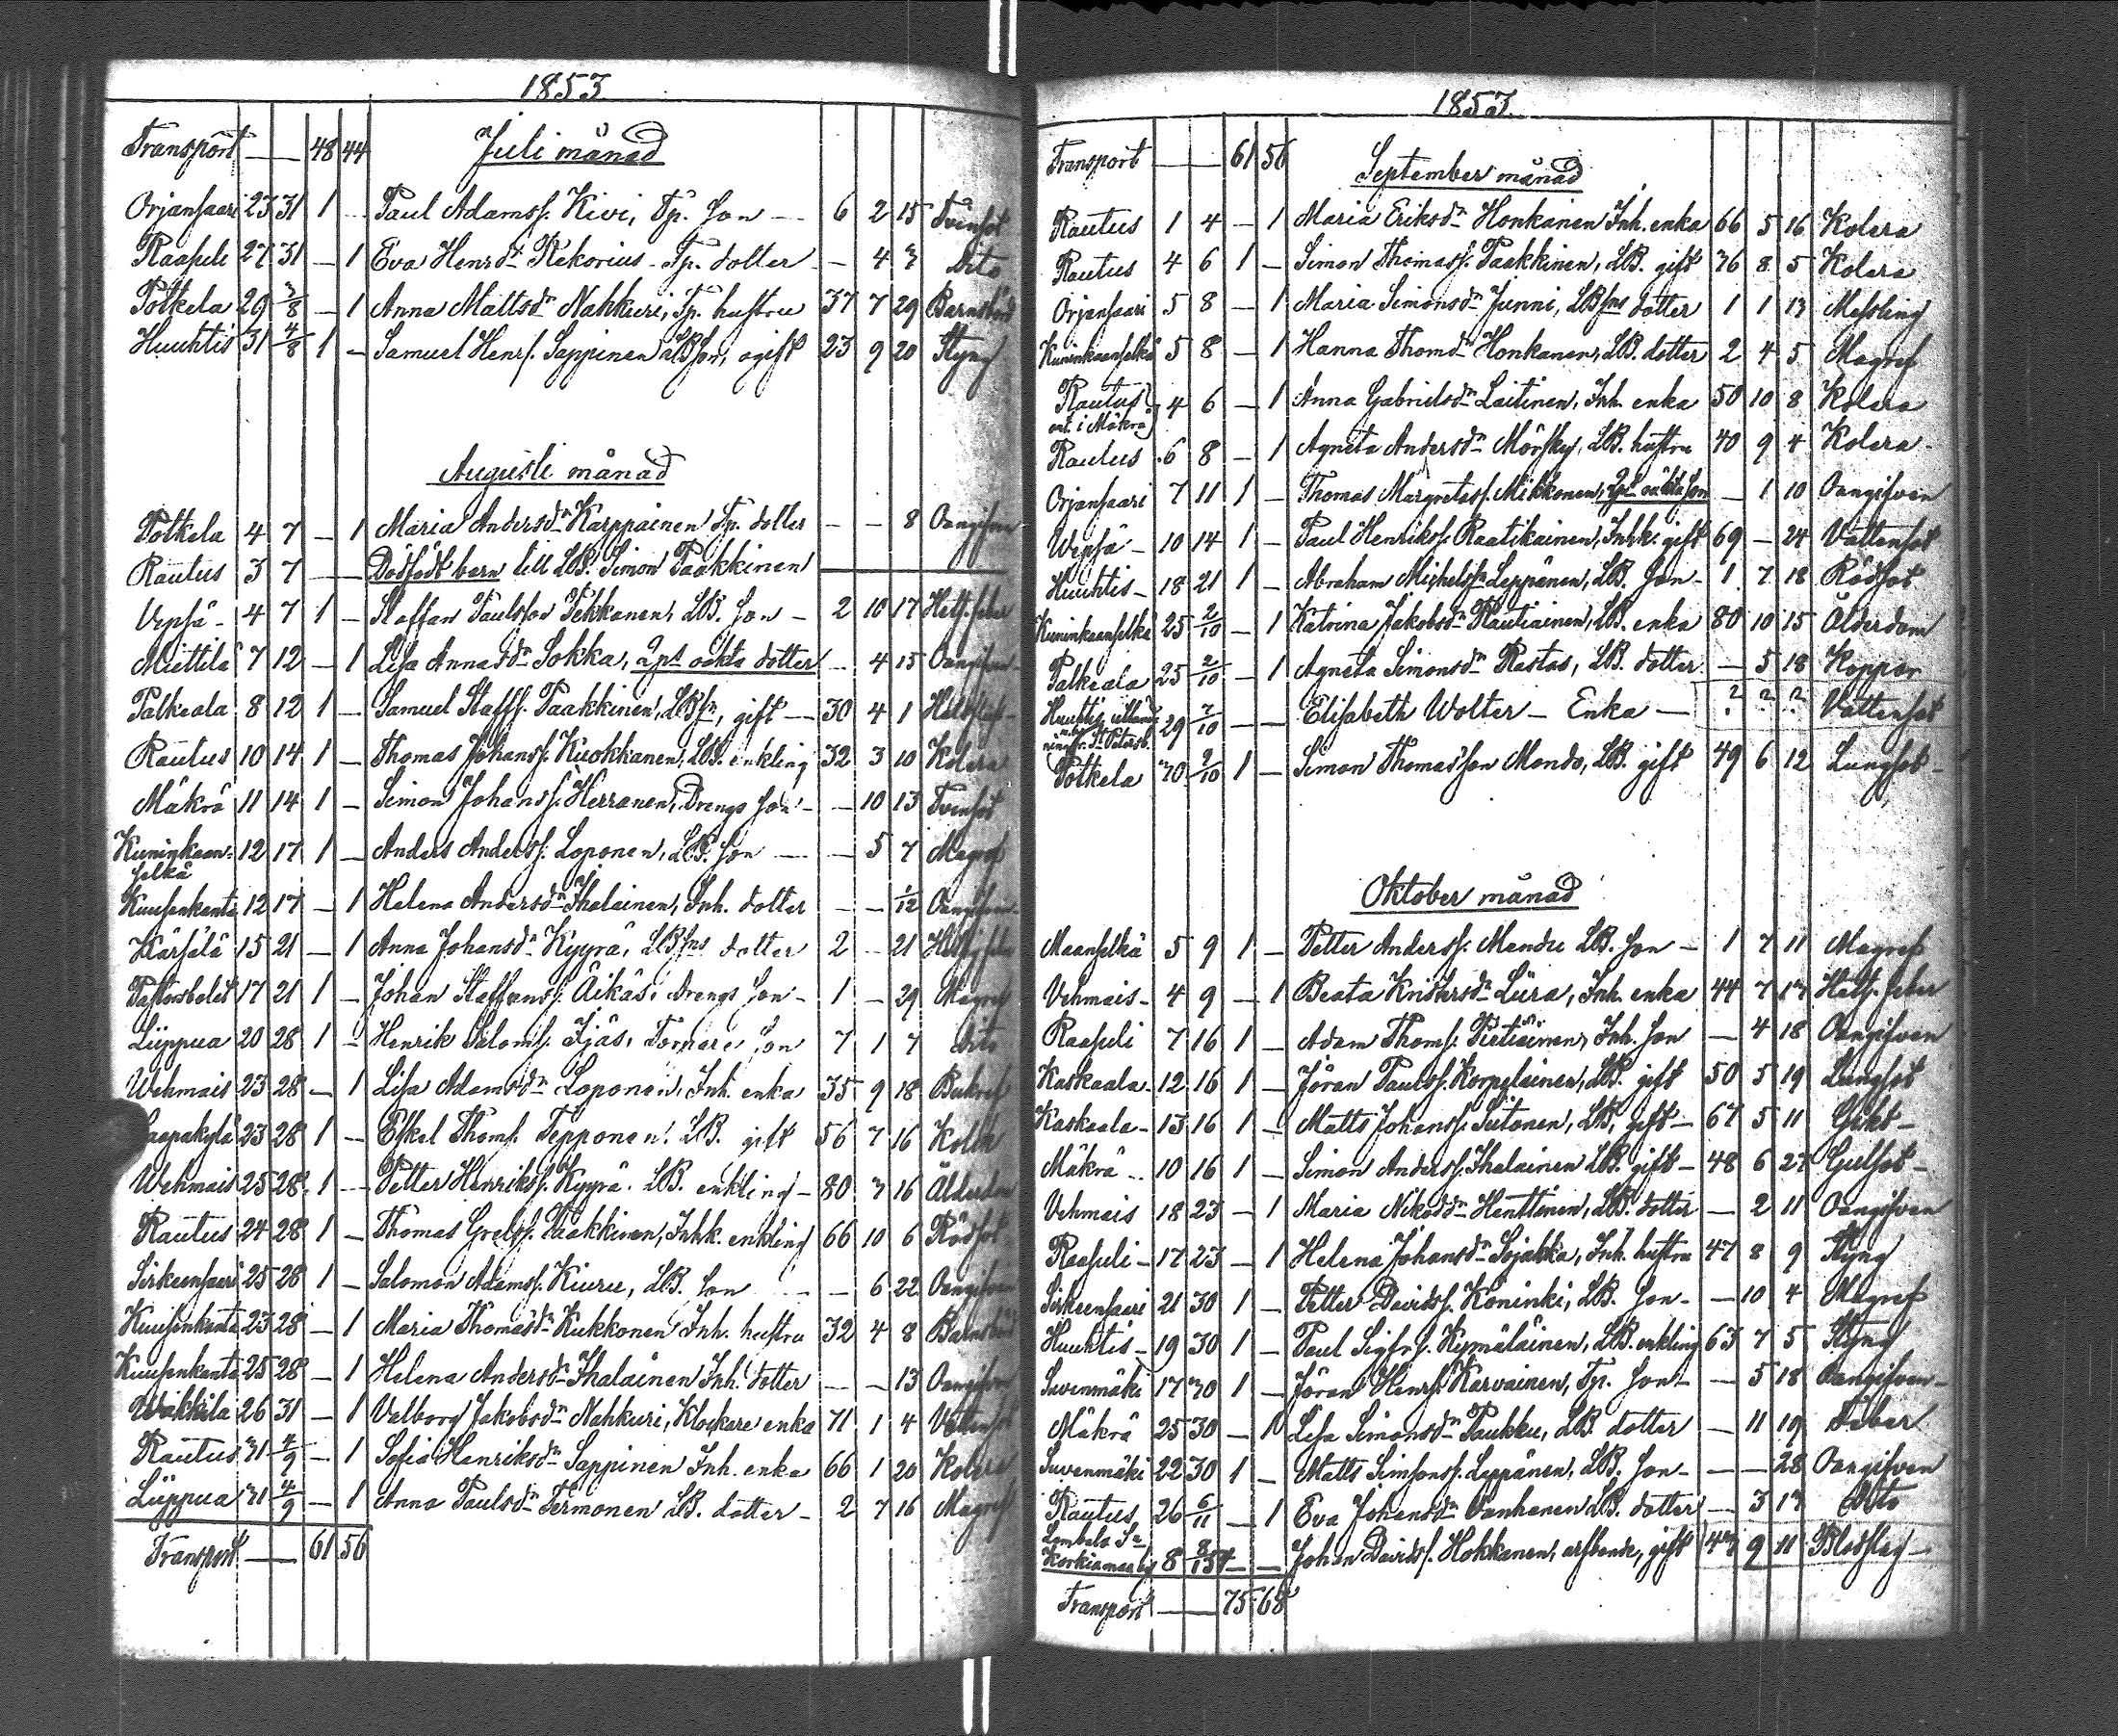 1853
Transport — 48 44 Juli månad
Orjansaari 23 31 1 — Paul Adamss. Kivi, Tp. Son — 6 2 15 Tvinsot
Raasuli 27 31 — 1 Eva Henrsdr Rekorius Tp. dotter — 4 3 Dito
Potkela 29 3/8 — 1 Anna Mattsdr Nahkuri, Tp. hustru 37 7 29 Barnsbörd
Huuhtis 31 4/8 1 — Samuel Henrs. Sappinen LBSon, ogift 23 9 20 Styng
Augusti månad
Potkela 4 7 — 1 Maria Andersdr Karppainen Tp. dotter — — 8 Oangifven
Rautus 3 7 — — Dödfödt barn till LB. Simon Paakkinen
Vepsä 4 7 1 — Staffan Paulsson Pekkanen, LB. Son — 2 10 17 Hets. feber
Miettilä 7 12 — 1 Lisa Annasdr Sokka, oäkta dotter — 4 15 Oangifven
Palkeala 8 12 1 — Samuel Staffs. Paakkinen, LBSn, gift — 30 4 1
Rautus 10 14 1 — Thomas Johanss. Kuokkanen, LB. enkling 32 3 10 Kolera
Mäkrä 11 14 1 — Simon Johanss. Herranen, Drengs Son — — 10 13 Tvinsot
Kuninkaan-
selkä 12 17 1 — Anders Anderss. Loponen, LB. Son — — 5 7 Magref
Kuusenkanta 12 17 — 1 Helena Andersdr Ihalainen, Inh. dotter — — 1/12 Oangifven
Kärsälä 15 21 — 1 Anna Johansdr Kyyrä, LBSns dotter 2 — 21
Pastorsbolet 17 21 1 — Johan Staffanss. Äikäs, Drengs Son — 1 — 29 Magref
Liippua 20 28 1 — Henrik Saloms. Ijäs, Tornare Son 7 1 7 Dito
Wehmais 23 28 — 1 Lisa Adamsdr Loponen, Inh. enka 35 9 18 Bukref
Haapakylä 23 28 1 — Eskel Thoms. Tepponen, LB. gift 56 7 16 Kolik
Wehmais 25 28 1 — Petter Henrikss. Kyyrä. LB. enkling — 80 3 16 Ålderdom
Rautus 24 28 1 — Thomas Grelss. Paakkinen, Inhk. enkling 66 10 6 Rödsot
Sirkunsaari 25 28 1 — Salomon Adamss. Kiuru, LB. Son — — 6 22 Oangifven
Kuusenkanta 23 28 — 1 Maria Thomasdr Kukkonen Inh. hustru 32 4 8 Barnsbörd
Kuusenkanta 25 28 — 1 Helena Andersdr Ihalainen Inh. dotter — — 13 Oangifven
Wakkila 26 31 — 1 Valborg Jakobsdr Nahkuri, Klockare enka 71 1 4 Vattensot
Rautus 31 4/9 — 1 Sofia Henriksdr Sappinen Inh. enka 66 1 20 Kolera
Liippua 31 4/9 — 1 Anna Paulsdr Termonen LB. dotter — 2 7 16 Magref
Transport — 61 56
1853.
Transport — 61 56 September månad
Rautus 1 4 — 1 Maria Eriksdr Honkanen Inh. enka 66 5 16 Kolera
Rautus 4 6 1 — Simon Thomass. Paakkinen, LB. gift 36 8 5 Kolera
Orjansaari 5 8 — 1 Maria Simonsdr Junni, LBSns dotter 1 1 13 Messling
Kuninkaanselkä 5 8 — 1 Hanna Thomdr Honkanen, LB. dotter 2 4 5 Magref
Rautus
i Mäkrä 4 6 — 1 Anna Gabrielsdr Laitinen, Inh. enka 50 10 8 Kolera
Rautus 6 8 — 1 Agneta Andersdr Mörsky, LB. hustru 40 9 4 Kolera
Orjansaari 7 11 1 — Thomas Margretass. Mikkonen, oäkta Son — 1 10 Oangifven
Wepsä — 10 14 1 — Paul Henrikss. Raatikainen, Inhk. gift 69 — 24 Vattensot
Huuhtis — 18 21 1 — Abraham Michelss. Leppänen, LB. Son — 1 7 18 Rödsot
Kuninkaanselkä 25 2/10 — 1 Katrina Jakobsdr Rautiainen, LB. enka 80 10 15 Ålderdom
Palkeala 25 2/10 — 1 Agneta Simonsdr Rastas, LB. dotter — 5 18 Koppor
Huuhtis
St Petersb. 29 2/10 — — Elisabeth Wolter — Enka — ? ? ? Vattensot
Potkela 30 2/10 1 — Simon Thomasson Mondo, LB. gift 49 6 12 Lungsot
Oktober månad
Maanselkä 5 9 1 — Petter Anderss. Mandu LB. Son — 1 7 11 Magref
Vehmais — 4 9 — 1 Beata Kristersdr Liira, Inh. enka 44 7 17 Hets. feber
Raasuli 7 16 1 — Adam Thoms. Pietiäinen, Inh. Son — 4 18 Oangifven
Kaskaala 12 16 1 — Jöran Paulss. Korpelainen, LB. gift 50 5 19 Lungsot
Kaskaala — 13 16 1 — Matts Johanss. Siitonen, LB. gift — 67 5 11 Gikt —
Mäkrä 10 16 1 — Simon Anderss. Ihalainen LB. gift — 48 6 27 Gulsot —
Vehmais 18 23 — 1 Maria Nikodr Henttinen, LB. dotter — 2 11 Oangifven
Raasuli — 17 23 — 1 Helena Johansdr Sojakka, Inh. hustru 47 8 9 Styng
Sirkunsaari 21 30 1 — Petter Davidss. Koninki, LB. Son — — 10 4 Magref
Huuhtis — 19 30 1 — Paul Sigfrs. Kymäläinen, LB. enkling 63 7 5 Styng
Suvenmäki 17 30 1 — Jöran Henrs. Karvainen, Tp. Son — — 5 18 Oangifven —
Mäkrä 25 30 — 1 Lisa Simonsdr Paukku, LB. dotter — 11 19 Feber
Suvenmäki 22 30 1 — Matts Simsonss. Leppänen, LB. Son — — — 28 Oangifven
Rautus 26 6/11 — 1 Eva Johansdr Vanhanen LB. dotter — 3 17 Dito
Lembala Sn
Korkiamaa by 8 8/15 — — Johan Davidss. Hokkanen, gift 47 9 11 Blodslag —
Transport — 75 68